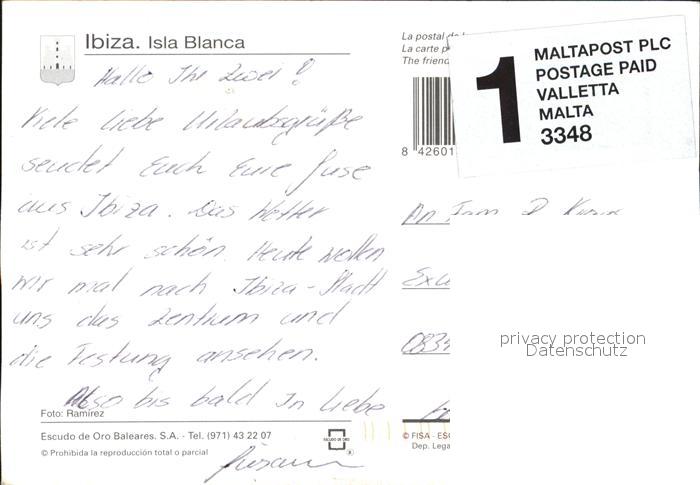 Ibiza. Isla Blanca
Hallo Ihr Zwei!
Viele liebe Urlaubsgrüße
sendet Euch Eure Suse
aus Ibiza. Das Wetter
ist sehr schön. Heute wollen
wir mal nach Ibiza-Stadt
uns das Zentrum und
die Festung ansehen.
Also bis bald In Liebe
Foto: Ramírez
Escudo de Oro Baleares. S.A. - Tel. (971) 43 22 07
© Prohibida la reproducción total o parcial
ESCUDO DE ORO
®
La postal de
La carte p
The friend
8 42601
1
MALTAPOST PLC
POSTAGE PAID
VALLETTA
MALTA
3348
An
privacy protection
Datenschutz
© FISA - ESC
Dep. Lega